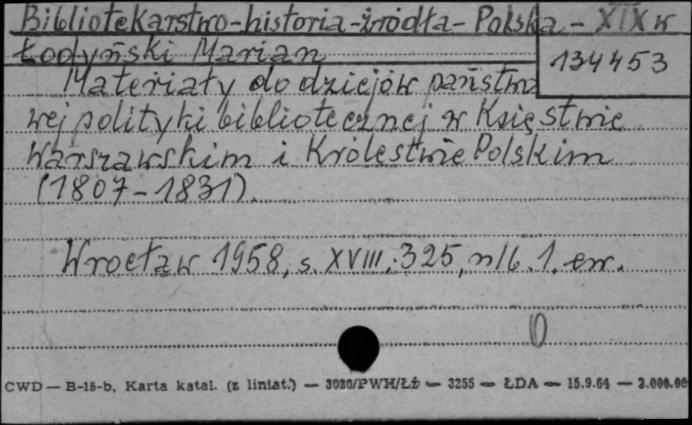 Bibliotekarstwo-historia-źródła- Polska - XIX w
Łodyński Marian
134453
Materiały do dziejów państwo
wej polityki bibliotecznej w Księstwie
Warszawskim i Królestwie Polskim
(1807-1831).
Wrocław 1958, s. XVIII, 325, nlb. 1. err.
CWD — B-15-b, Karta katal. (z liniat.) — 3030/PWH/Łż — 3255 — ŁDA — 15.9.64 — 2.000.00